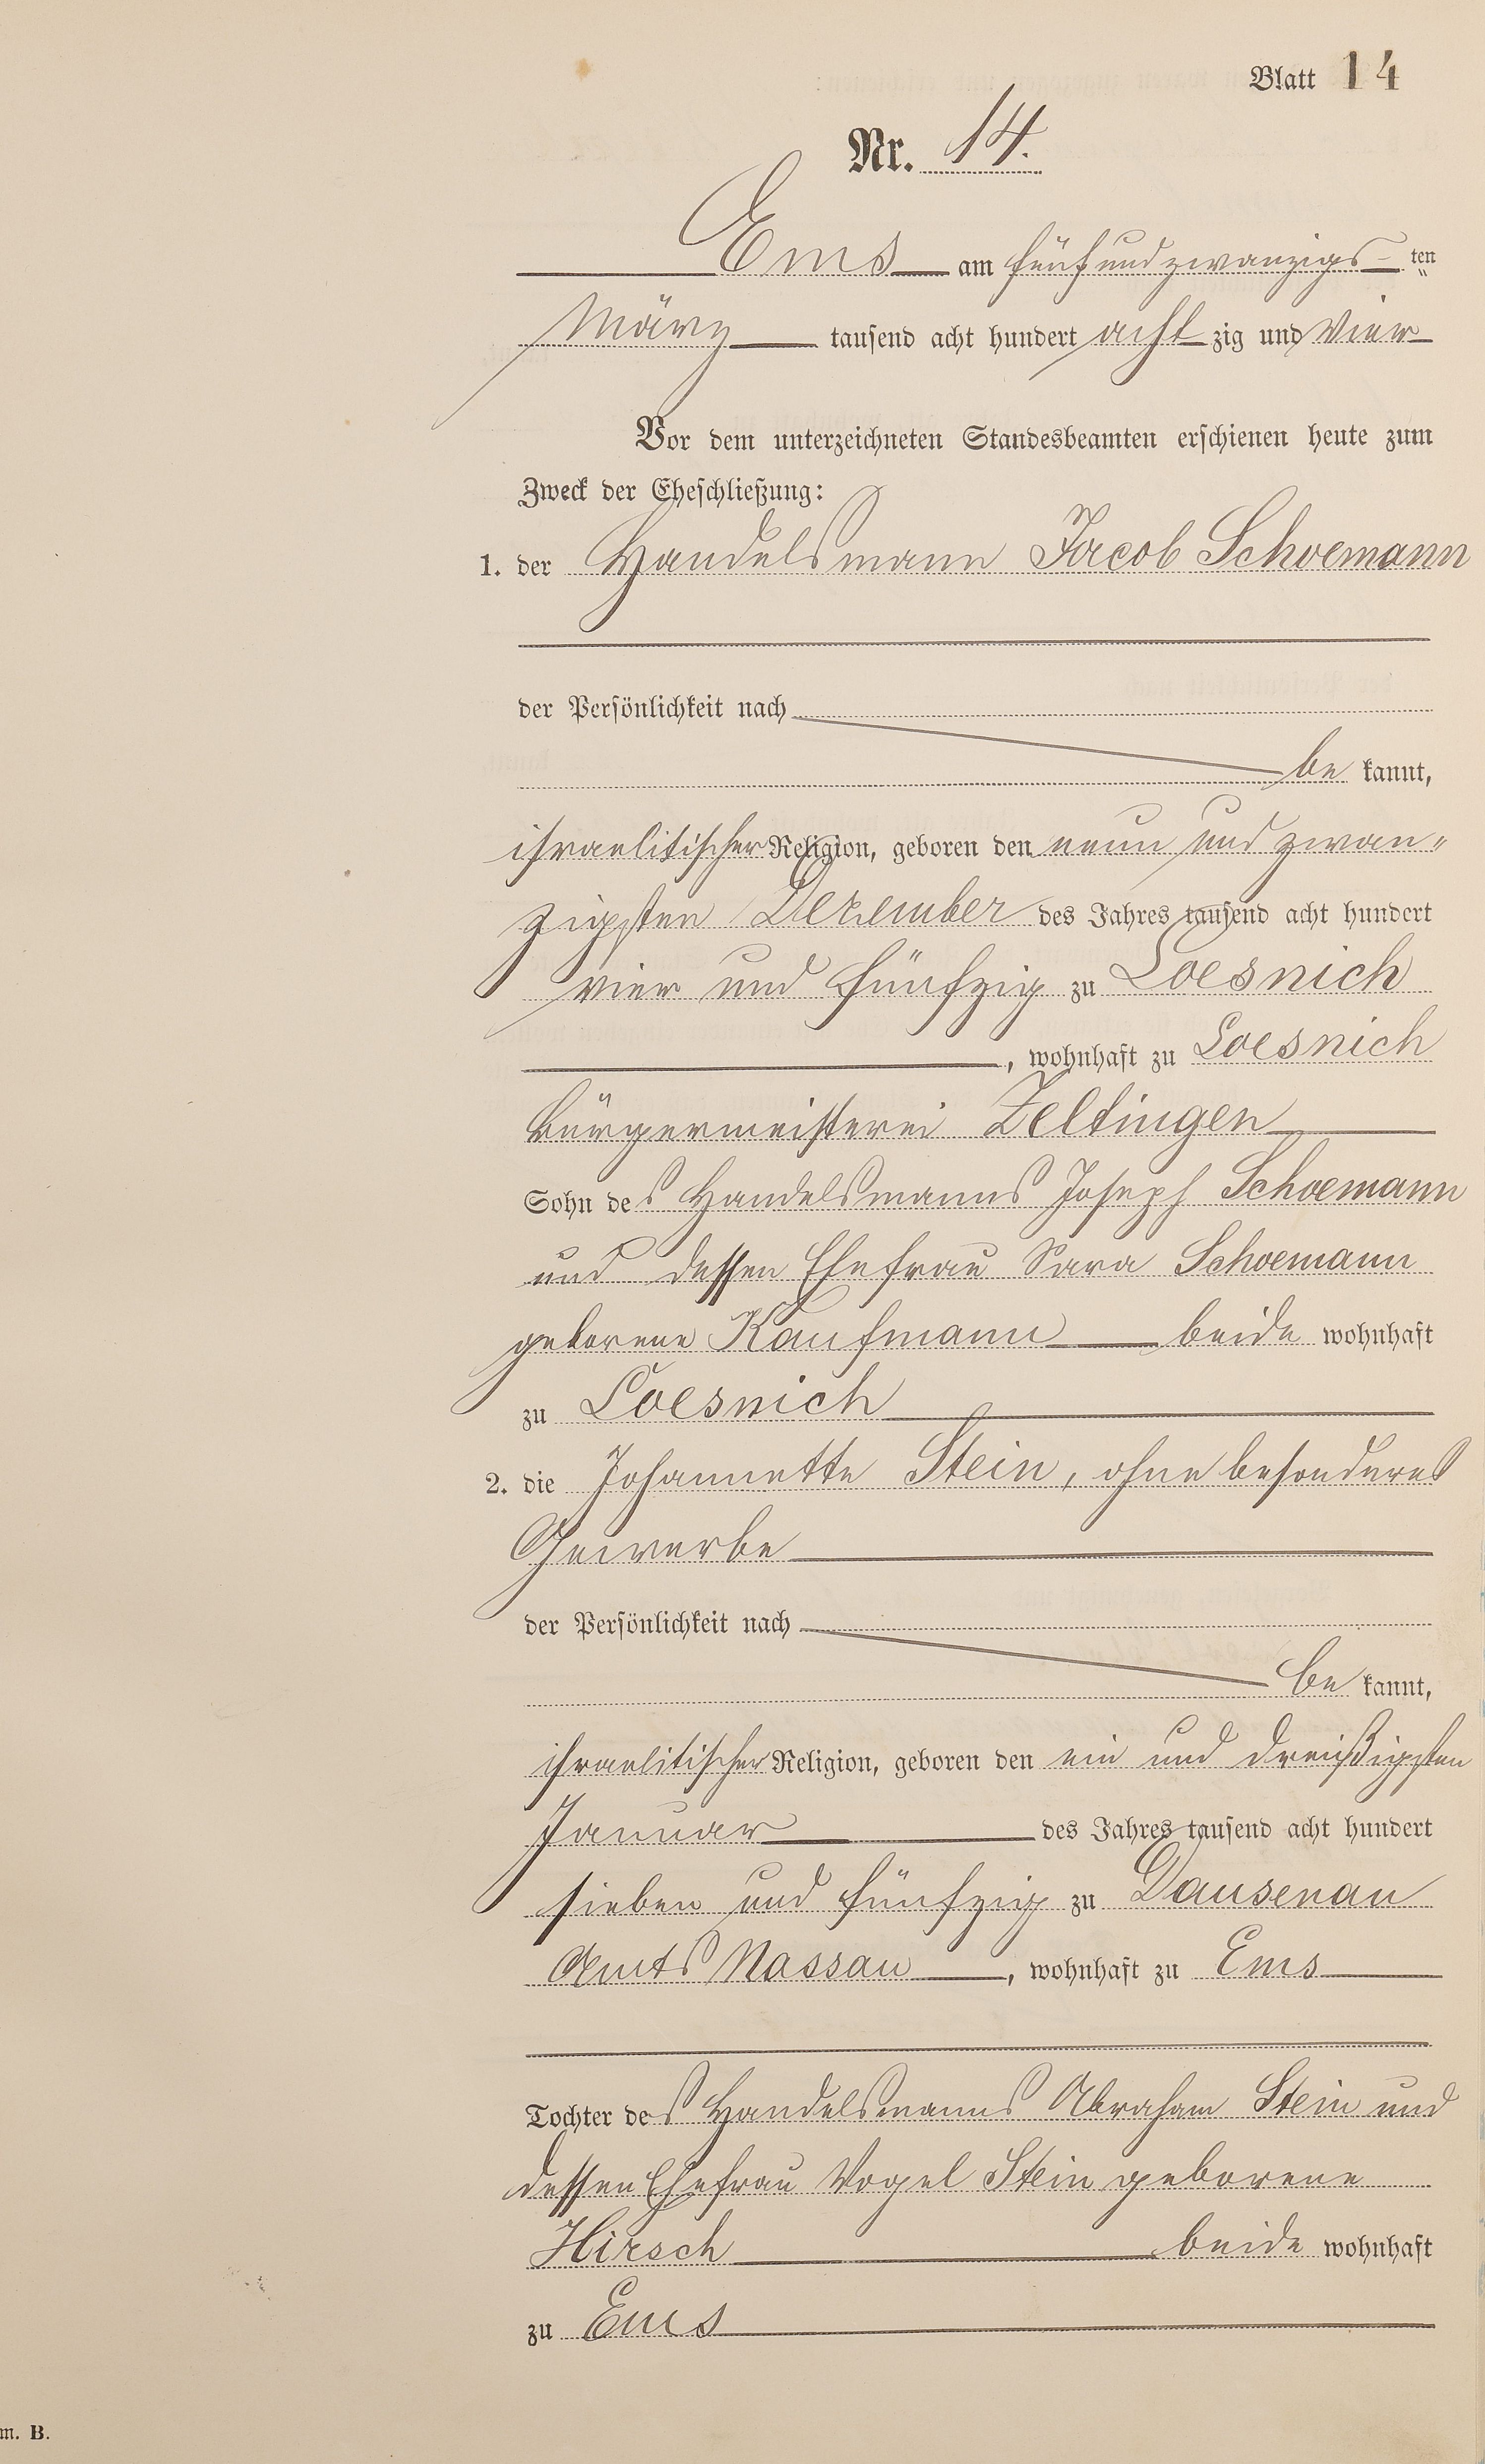 Blatt 14
Nr. 14.
Ems am fünfundzwanzigs ten
März tausend acht hundert acht zig und vier
Vor dem unterzeichneten Standesbeamten erschienen heute zum
Zweck der Eheschließung:
1. der Handelsmann Jacob Schoemann
der Persönlichkeit nach
be kannt,
israelitischer Religion, geboren den neun und zwan„
zigsten Dezember des Jahres tausend acht hundert
vier und fünfzig zu Loesnich
, wohnhaft zu Loesnich
Bürgermeisterei Zeltingen
Sohn des Handelsmanns Joseph Schoemann
und dessen Ehefrau Sara Schoemann
geborene Kaufmann beide wohnhaft
zu Loesnich
2. die Johannette Stein, ohne besonderes
Gewerbe
der Persönlichkeit nach
be kannt,
israelitischer Religion, geboren den ein und dreißigsten
Januar des Jahres tausend acht hundert
sieben und fünfzig zu Dausenau
Amts Nassau, wohnhaft zu Ems
Tochter des Handelsmanns Abraham Stein und
dessen Ehefrau Vogel Stein geborene
Hirsch beide wohnhaft
zu Ems
m. B.